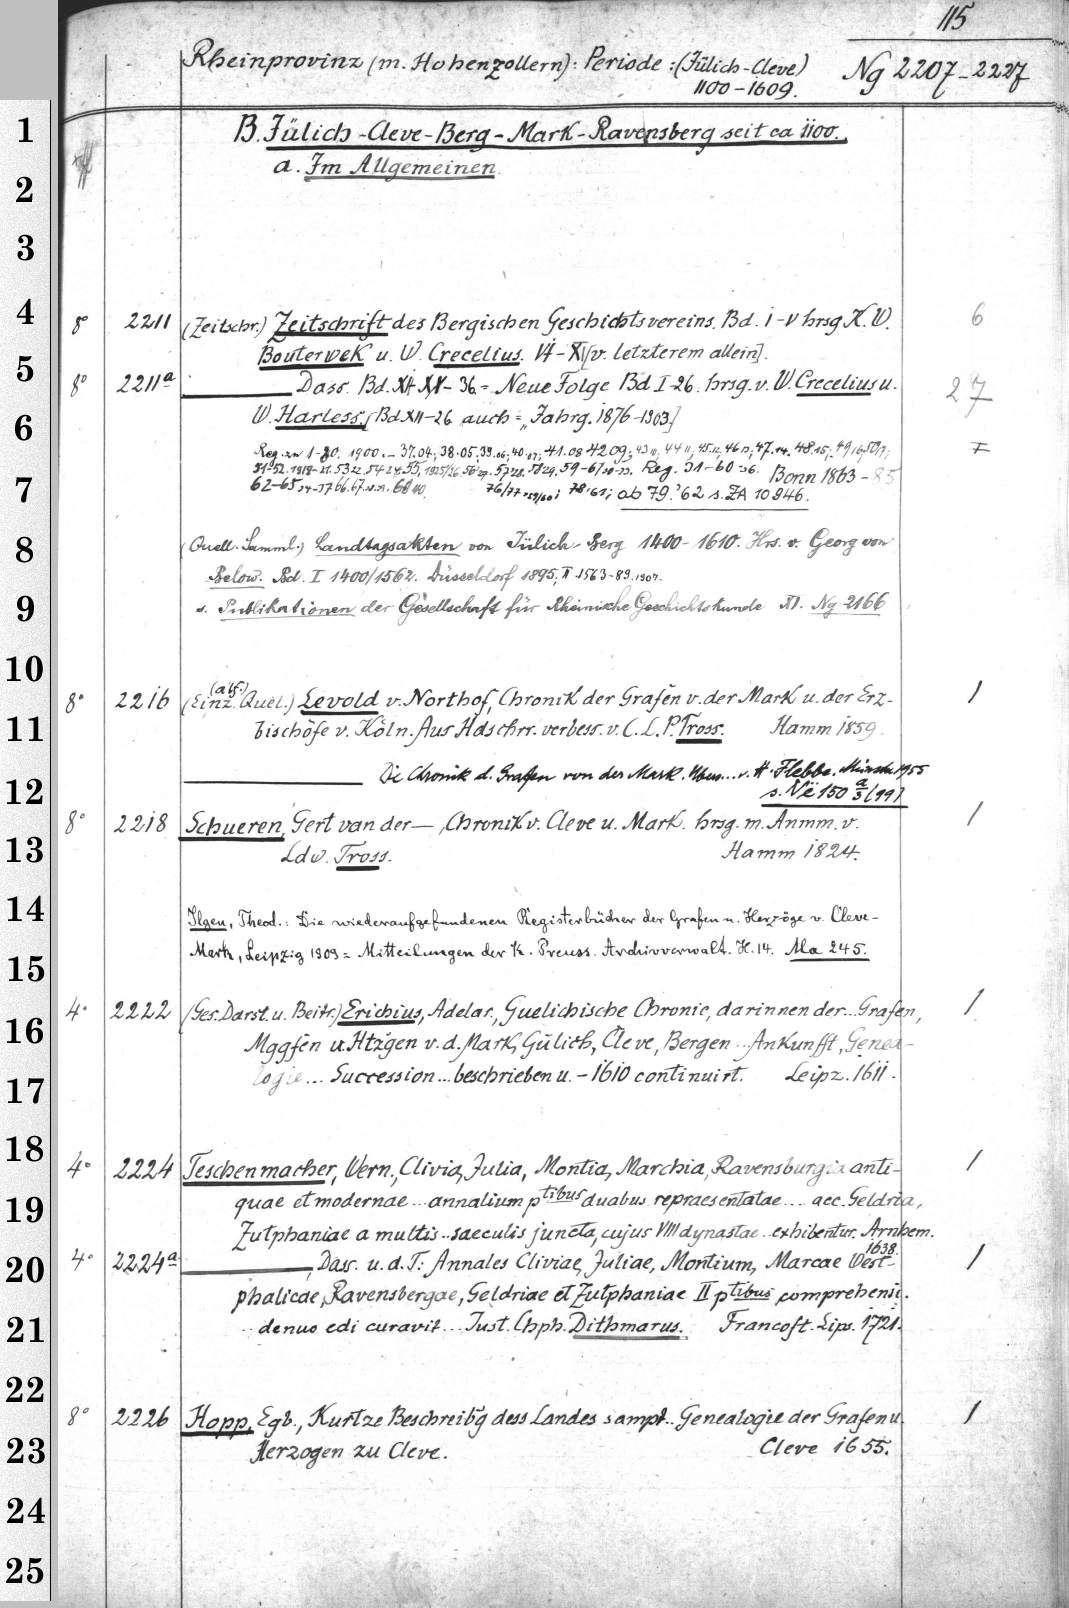 115
Rheinprovinz (m. Hohenzollern): Periode: (Jülich-Cleve) Ng 2207-2227
1100-1609.
1 B. Jülich-Cleve-Berg-Mark-Ravensberg seit ca 1100.
2 a. Im Allgemeinen.
3
4 8° 2211 (Zeitschr.) Zeitschrift des Bergischen Geschichtsvereins. Bd. I-V hrsg K. W. 6
Bouterwek u. W. Crecelius. VI-XI [v. letzterem allein].
5 8° 2211a Dass. Bd. XII-36 = Neue Folge Bd I-26. hrsg. v. W. Crecelius u. 27
6 W. Harless. [Bd XII-26 auch = „Jahrg. 1876-1903]
Reg. zu 1-30. 1900. - 37.04; 38.05; 39.06; 40.07; 41.08 42 09; 43 44 11; 45.12; 46 13; 47.14. 48.15; 49 16; I
7 Reg. 31-60 Bonn 1863-85
62-65 76/77 ab 79.'62 s. ZA 10946.
8 (Quell. Samml.) Landtagsakten von Jülich-Berg 1400-1610. Hrs. v. Georg von
Below. Bd. I 1400/1562. Düsseldorf 1895; II 1563-89. 1907.
9 s. Publikationen der Gesellschaft für Rheinische Geschichtskunde XI. Ng 2166
10 (als)
8° 2216 (Einz. Quel.) Levold v. Northof, Chronik der Grafen v. der Mark u. der Erz- 1
11 bischöfe v. Köln. Aus Hdschrr. verbess. v. C. L. P. Tross. Hamm 1859.
Die Chronik d. Grafen von der Mark. Übers... v. H. Flebbe. Münster 1955
12 s. Në 150 a/3 (99)
8° 2218 Schueren, Gert van der —, Chronik v. Cleve u. Mark. hrsg. m. Anmm. v. 1
13 Ldw. Tross. Hamm 1824.
14 Ilgen, Theod.: Die wiederaufgefundenen Registerbücher der Grafen u. Herzöge v. Cleve-
15 Mark, Leipzig 1909 = Mitteilungen der K. Preuss. Archivverwalt. H. 14. Ma 245.
4° 2222 (Ges. Darst. u. Beitr.) Erichius, Adelar., Guelichische Chronic, darinnen der... Grafen, 1
16 Mggfen u. Htzgen v. d. Mark, Gülich, Cleve, Bergen... Ankunfft, Genea-
17 logie... Succession... beschrieben u. - 1610 continuirt. Leipz. 1611.
18 4° 2224 Teschenmacher, Wern., Clivia, Julia, Montia, Marchia, Ravensburgia anti- 1
19 quae et modernae... annalium ptibus duabus repraesentatae... acc. Geldria,
Zutphaniae a multis.. saeculis juncta, cujus VIII dynastae.. exhibentur. Arnhem.
1638.
20 4° 2224a Dass. u. d. T: Annales Cliviae, Juliae, Montium, Marcae West- 1
phalicae, Ravensbergae, Geldriae et Zutphaniae II ptibus comprehensi.
21 .. denuo edi curavit... Just. Chph. Dithmarus. Francoft. Lips. 1721.
22
8° 2226 Hopp, Egb., Kurtze Beschreibg dess Landes sampt.. Genealogie der Grafen u. 1
23 Herzogen zu Cleve. Cleve 1655.
24
25